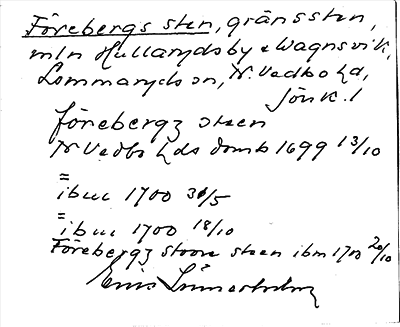 Förebergs sten, gränssten,
mln Hullarydsby o Wagnsvik,
Lommaryds sn, N. Vedbo hd,
Jönk. l
förebergz steen
N Vedbo hds domb 1699 13/10
=
ibm 1700 30/5
=
ibm 1700 18/10
Förebergz stoore steen ibm 1700 20/10